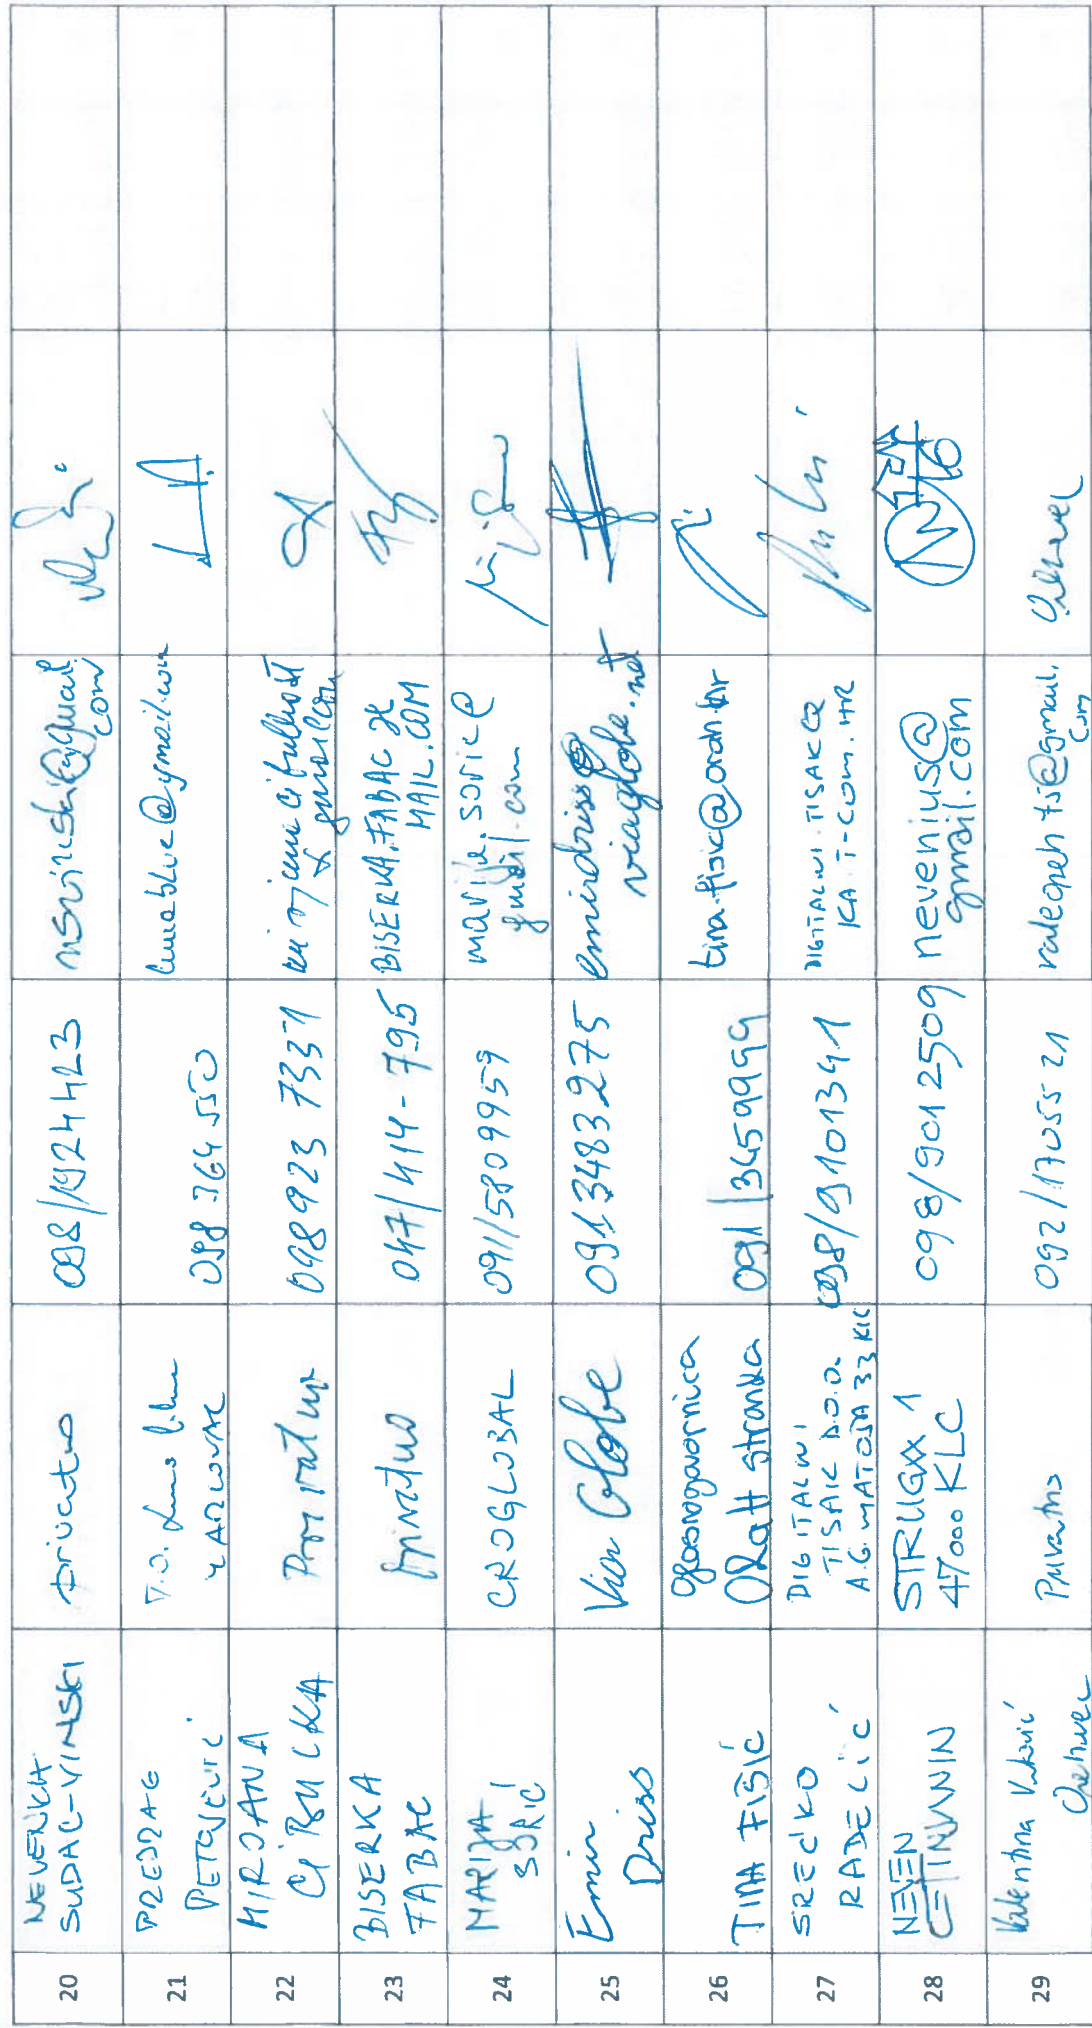 20
NEVENKA
SUDAC-VINSKI
privatno
098/1924423
com
21
PREDRAG
PETROVIĆ
KARLOVAC
098 364 550
22
MIRJANA
CIBULKA
Privatno
098 923 7337
23
BISERKA
FABAC
privatno
047/414-795
BISERKA.FABAC
MAIL.COM
24
MARIJA
SORIĆ
CROGLOBAL
091/5809959
marija.soric@
gmail.com
25
Emir
Driss
Via Globe
091 3483275
emirdriss@
viaglobe.net
26
TINA FIŠIĆ
glasnogovornica
OraH stranka
091/3659999
tina.fisic@orah.hr
27
SREĆKO
RADELIĆ
DIGITALNI
TISAK D.O.O.
A.G. MATOŠA 33 KLC
098/9101341
DIGITALNI.TISAK
KA.T-COM.HR
28
NEVEN
CETINJANIN
STRUGXX 1
47000 KLC
098/9012509
nevenius@
gmail.com
29
Valentina Vuković
Privatno
092/1705521
com